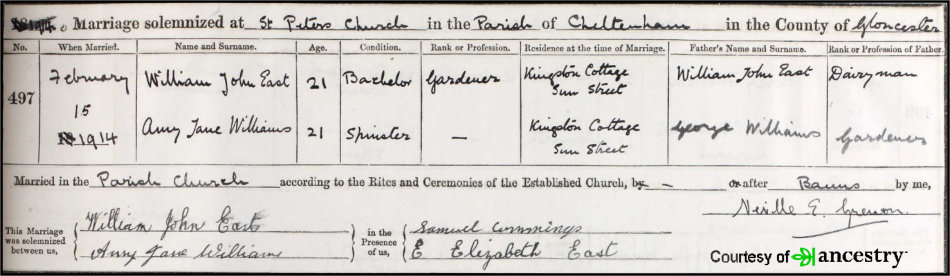 1914. Marriage solemnized at St Peters Church in the Parish of Cheltenham in the County of Gloucester
No. When Married. Name and Surname. Age. Condition. Rank or Profession. Residence at the time of Marriage. Father's Name and Surname. Rank or Profession of Father.
497 February 15 1914 William John East 21 Bachelor Gardener Kingston Cottage Sun Street William John East Dairyman
Amy Jane Williams 21 Spinster — Kingston Cottage Sun Street George Williams Gardener
Married in the Parish Church according to the Rites and Ceremonies of the Established Church, by - or after Banns by me,
Neville E.
This Marriage was solemnized between us, William John East Amy Jane Williams in the Presence of us, Samuel Cummings E Elizabeth East
Courtesy of ancestry™